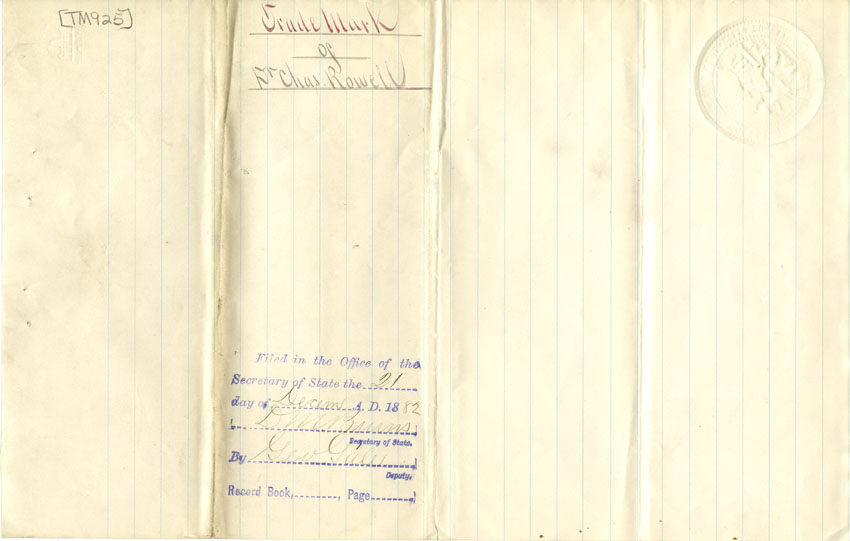 [TM925]
Trade Mark
of
Dr Chas Rowell
Filed in the Office of the
Secretary of State the 21
day of Decem A. D. 1882
Secretary of State.
By Geo
Deputy.
Record Book, , Page